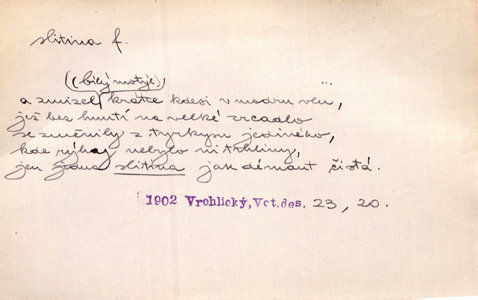 slitina f.
(bílý motýl) ...
a zmizel krátce kdesi v modru vln,
jež bez hnutí na velké zrcadlo
se změnily z tyrkysu jediného,
kde rýhy nebylo ni trhliny,
jen jedna slitina jak démant čistá.
1902 Vrchlický, Vct.des. 23, 20.